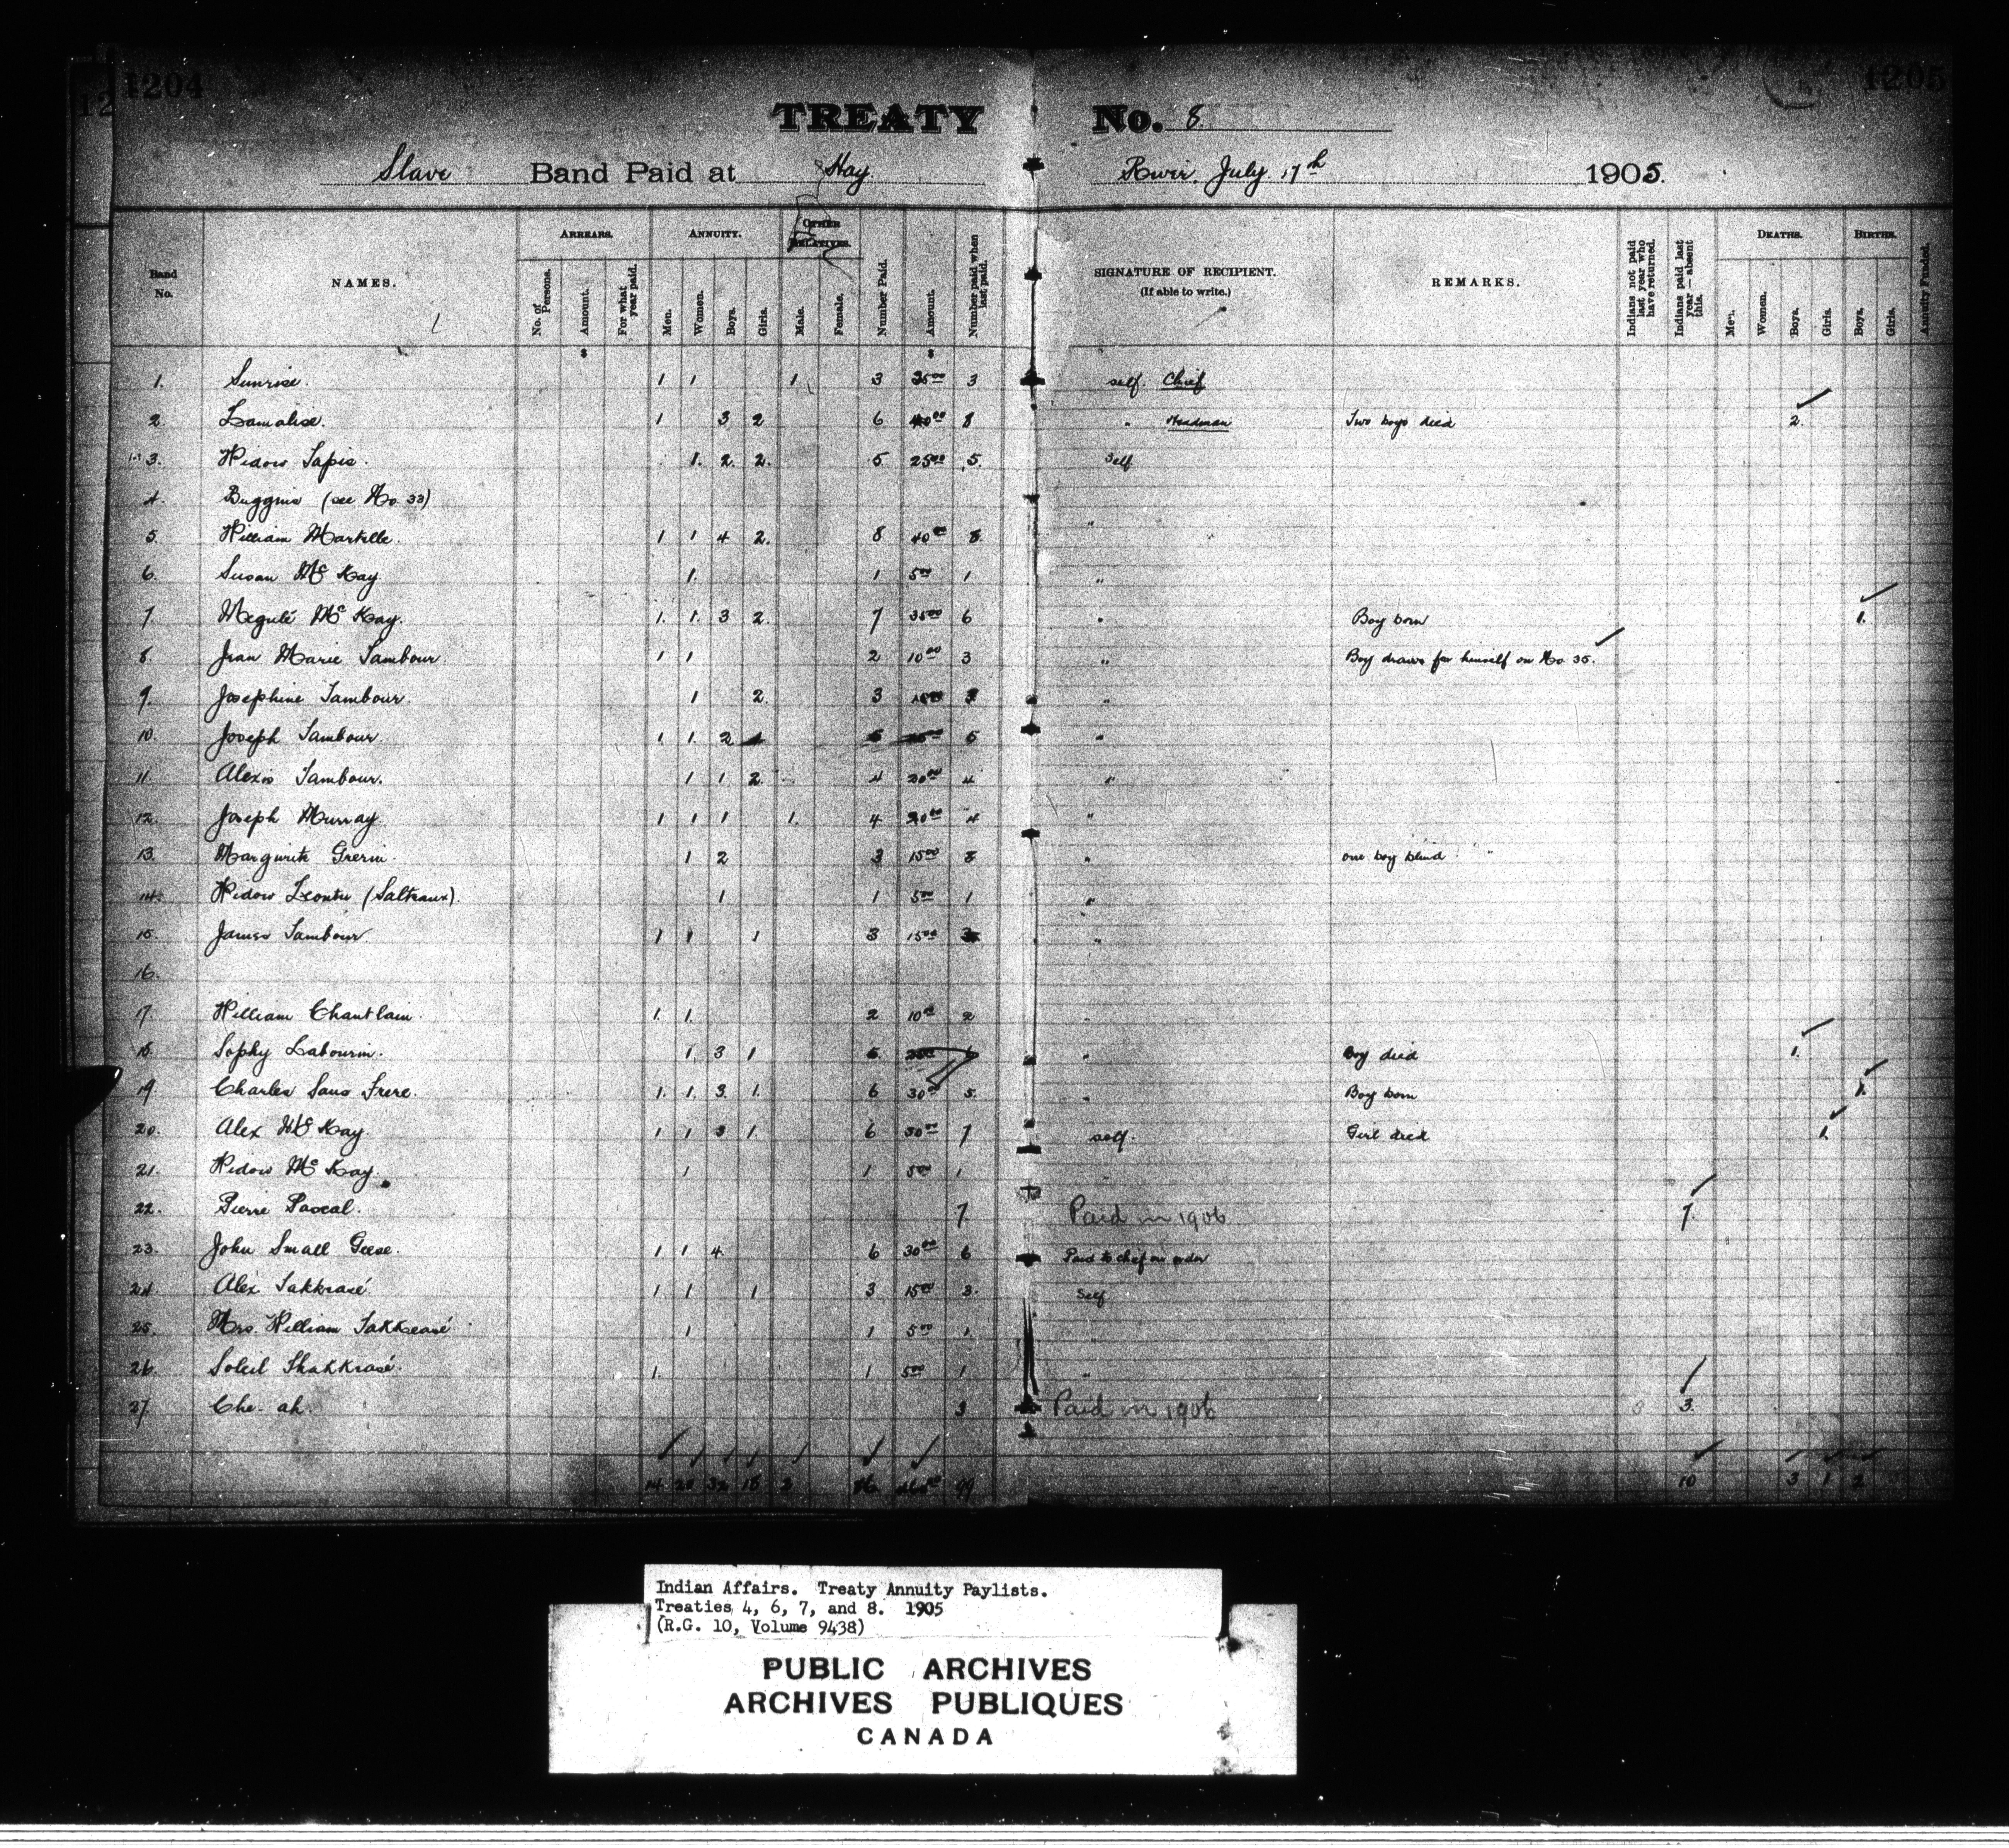 1204 1205
12
TREATY No. 8
Slave Band Paid at Hay River. July 17th 1905.
Band No. NAMES. ARREARS. No. of Persons. Amount. For what year paid. ANNUITY. Men. Women. Boys. Girls. OTHER RELATIVES. Male. Female. Number Paid. Amount. Number paid when last paid. SIGNATURE OF RECIPIENT. (If able to write.) REMARKS. Indians not paid last year who have returned. Indians paid last year—absent this. DEATHS. Men. Women. Boys. Girls. BIRTHS. Boys. Girls. Annuity Funded.
$ $
1. Sunrise. 1 1 1 3 3500 3 self. Chief
2. Lamalise. 1 3 2 6 4000 8 " Headman Two boys died 2.
3. Widow Tapis. 1. 2. 2. 5. 2500 5. Self
4. Buggins (see No. 33)
5. William Martelle. 1 1 4 2. 8 4000 8. "
6. Susan Mc Kay 1. 1 500 1 "
7. Megulé Mc Kay. 1. 1. 3 2. 7 3500 6 " Boy born 1.
8. Jean Marie Tambour. 1 1 2 1000 3 " Boy draws for himself on No. 35.
9. Josephine Tambour. 1 2. 3 1500 "
10. Joseph Tambour. 1. 1. 2 5 "
11. Alexis Tambour. 1 1 2. 4 2000 4 "
12. Joseph Murray. 1 1 1 1. 4 2000 4 "
13. Margurite Grerin. 1 2 3 1500 " one boy blind
14. Widow Leontu (Salteaux). 1 1 500 1 "
15. James Tambour. 1 1 1 3 1500 "
16.
17. William Chantlain. 1. 1. 2 1000 2
18. Sophy Labourin. 1 3 1 5 " Boy died 1.
19. Charles Sans Frere. 1. 1. 3. 1. 6 3000 5. " Boy born 1.
20. Alex Mc Kay. 1 1 3 1. 6 3000 7 self. Girl died 1.
21. Widow Mc Kay. 1 1 500 1
22. Pierre Pascal. 7. Paid in 1906 7.
23. John Small Geese. 1 1 4. 6 3000 6 Paid to chief on order
24. Alex Takkrasé 1 1 1 3 1500 3. Self
25. Mrs. William Takkeasé 1 1 500 1.
26. Soleil Thakkrasé. 1. 1 500 1 "
27. Che-ah. 3 Paid in 1906 3.
14 20 32 18 2 86 99 10 3 1 2
Indian Affairs. Treaty Annuity Paylists.
Treaties 4, 6, 7, and 8. 1905
(R.G. 10, Volume 9438)
PUBLIC ARCHIVES
ARCHIVES PUBLIQUES
CANADA